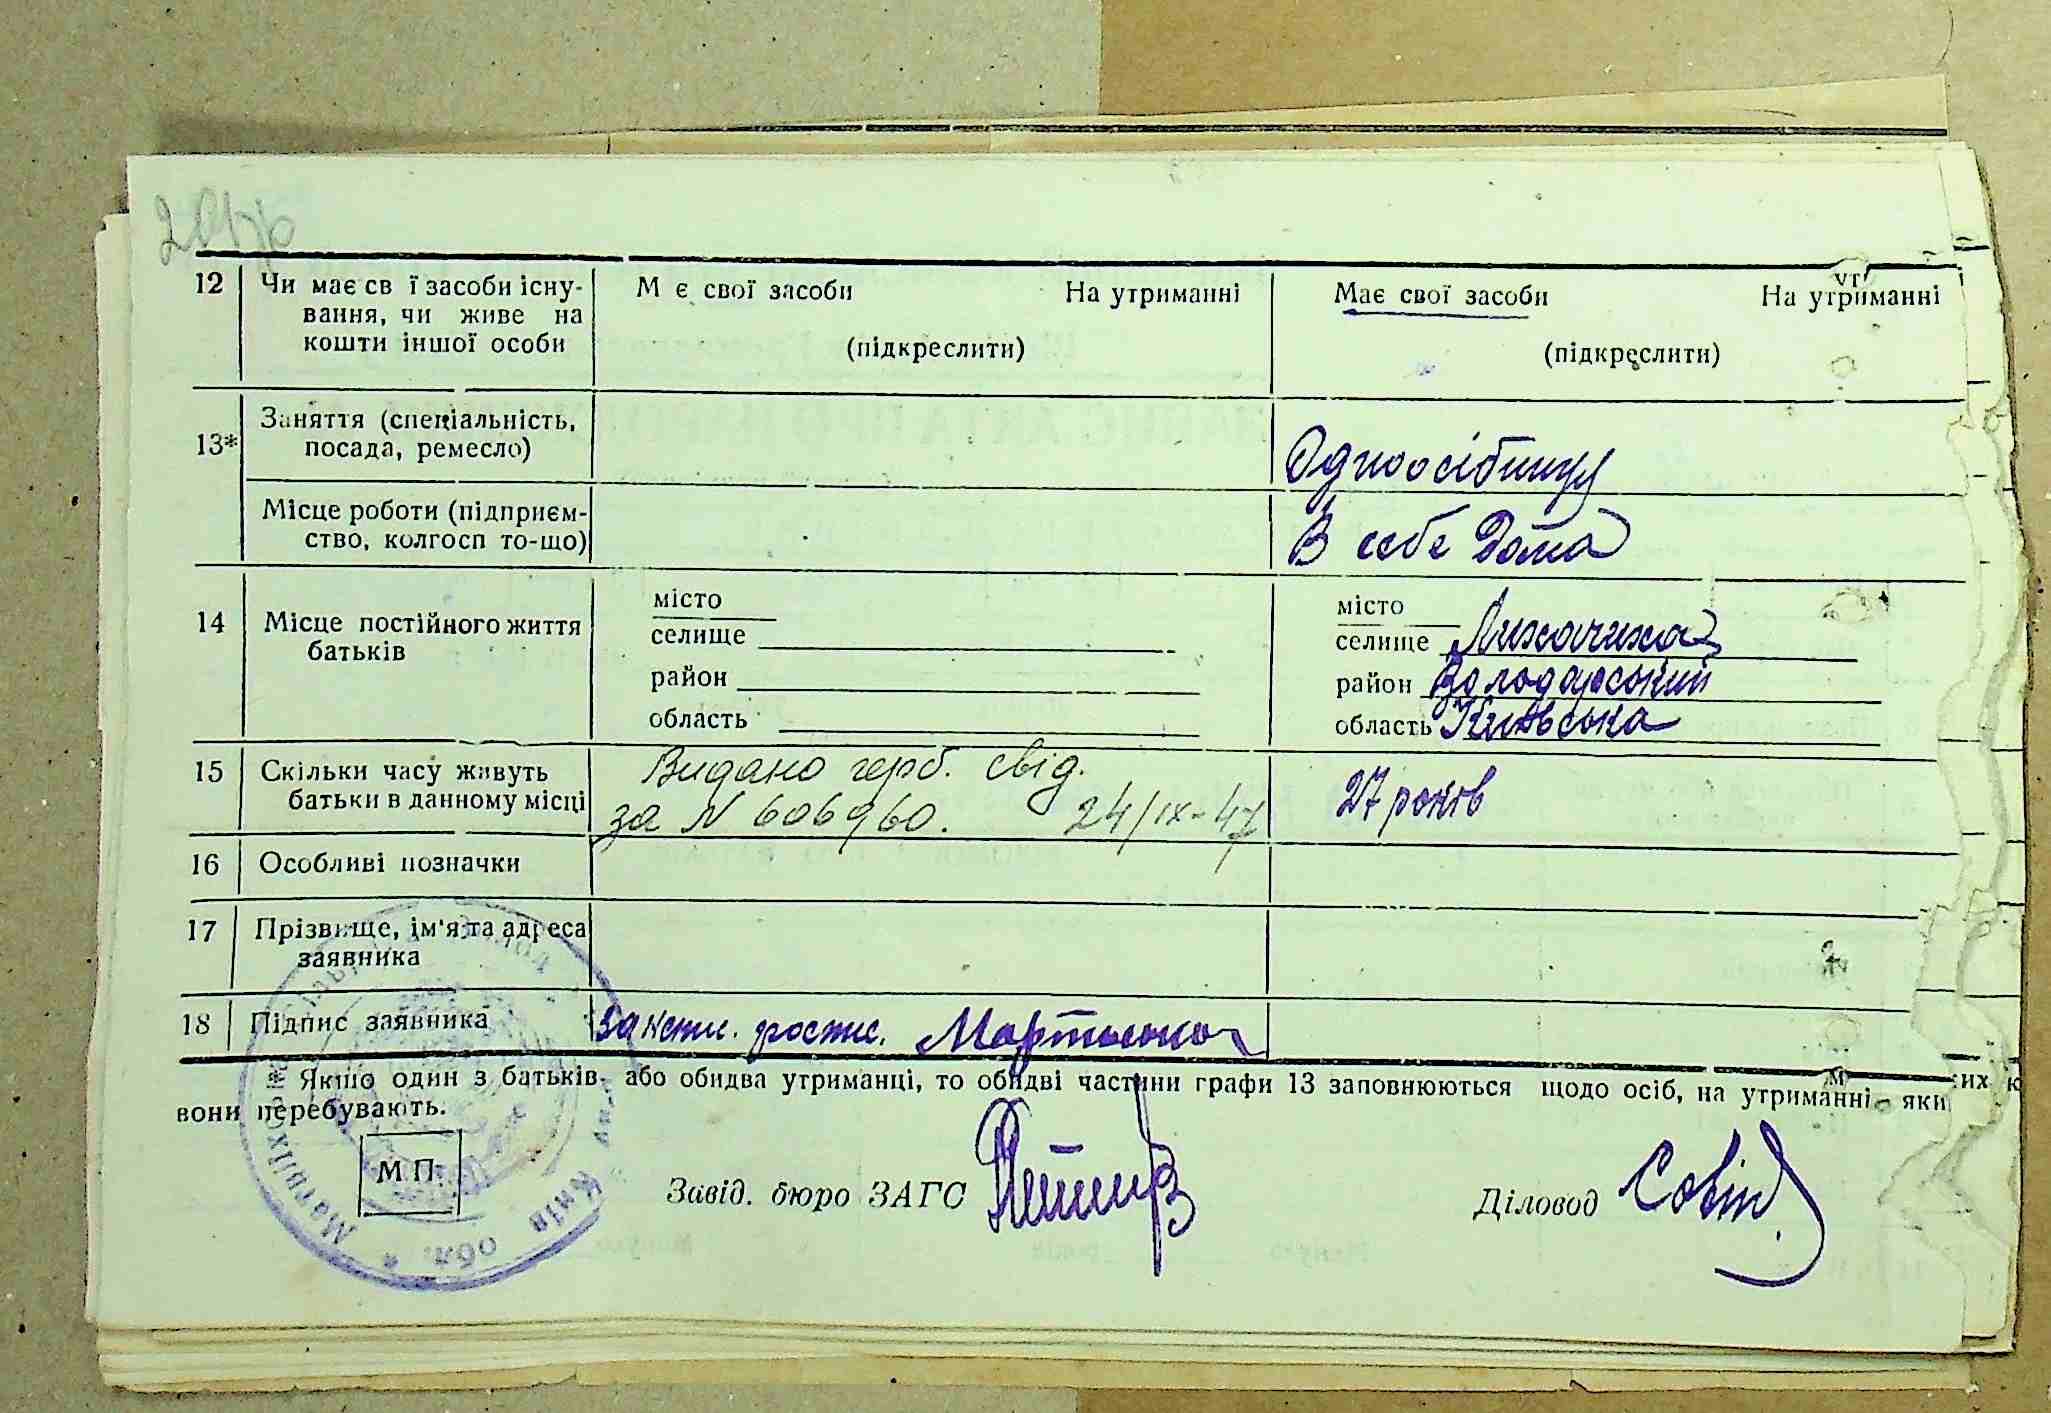 12 Чи має св ї засоби існу-
вання, чи живе на
кошти іншої особи
М є свої засоби На утриманні
(підкреслити)
Має свої засоби На утриманні
(підкреслити)
13* Заняття (спеціальність,
посада, ремесло)
Одноосібниця
Місце роботи (підприєм-
ство, колгосп то-що)
В себе Дома
14 Місце постійного життя
батьків
місто
селище
район
область
місто
селище Лихачиха
район Володарський
область Київська
15 Скільки часу живуть
батьки в данному місці
Видано герб. свід.
за N 606960. 24/IX-47
27 років
16 Особливі позначки
17 Прізвище, ім'я та адреса
заявника
18 Підпис заявника
росте. Мартиенко
* Якщо один з батьків або обидва утриманці, то обидві частини графи 13 заповнюються щодо осіб, на утриманні яки
вони перебувають.
М П.
Завід. бюро ЗАГС
Діловод
Київ обл. *